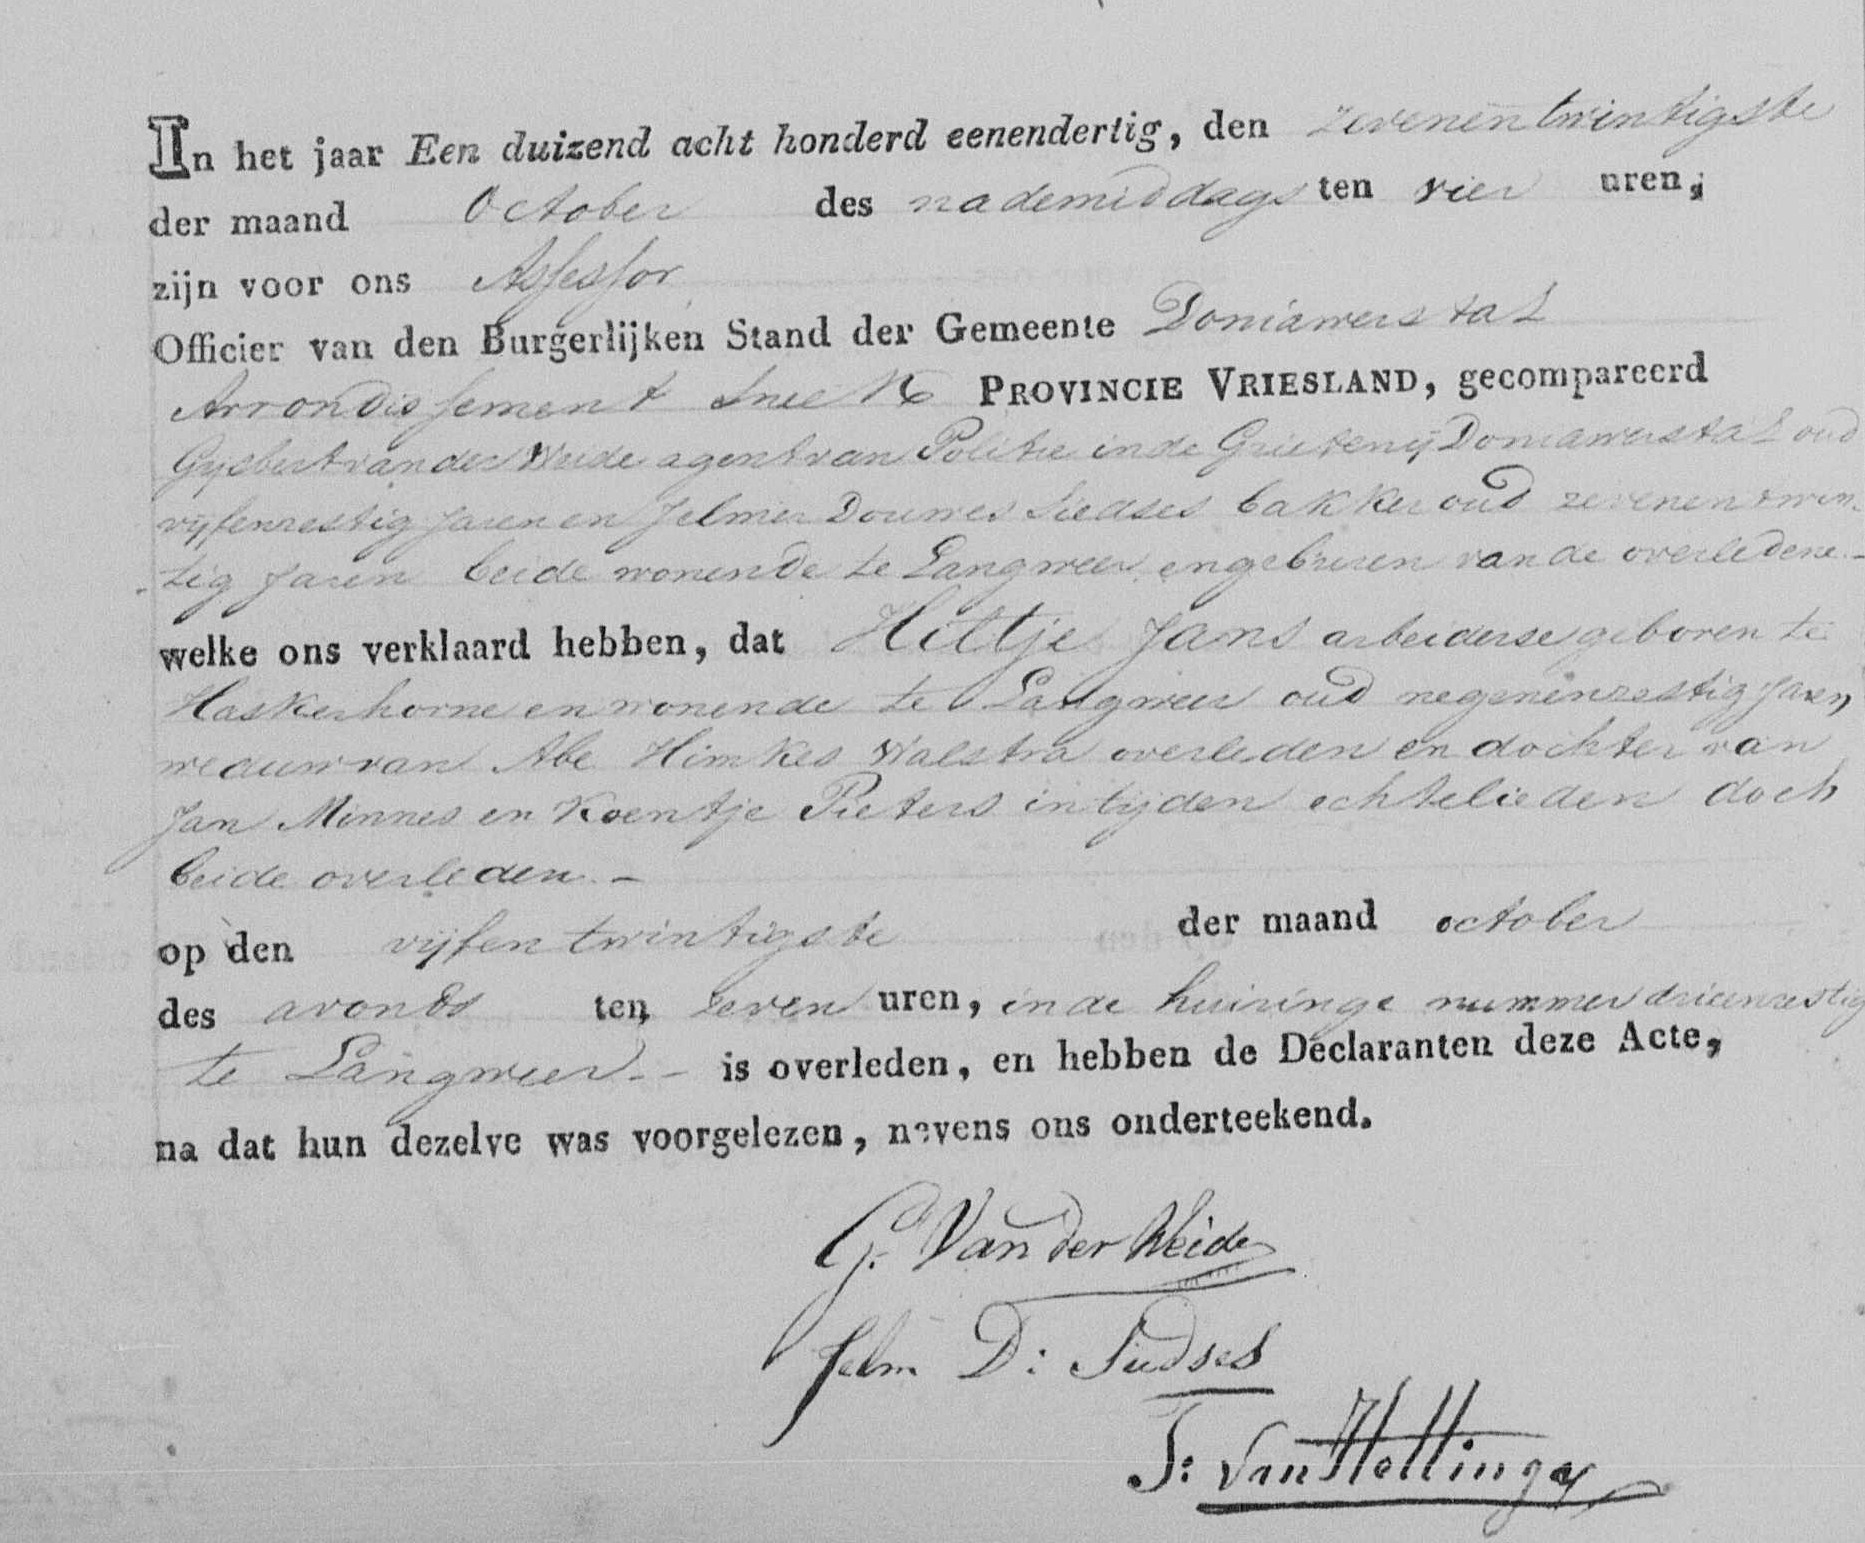 In het jaar Een duizend acht honderd eenendertig, den zevenentwintigste
der maand October des nademiddags ten vier uren,
zijn voor ons Assessor
Officier van den Burgerlijken Stand der Gemeente Doniawerstal
Arrondissement Sneek PROVINCIE VRIESLAND, gecompareerd
Gijsbert van der Weide agent van Politie in de Grietenij Doniawerstal oud
vijfenzestig jaren en Jelmer Douwes Siedses bakker oud zevenentwin-
tig jaren beide wonende te Langweer en geburen van de overledene.-
welke ons verklaard hebben, dat Hiltje Jans arbeiderse geboren te
Haskerhorne en wonende te Langweer oud negenenzestig jaren,
weduw van Abe Himkes Walstra overleden en dochter van
Jan Minnes en Koentje Pieters in tijden echtelieden doch
beide overleden.-
op den vijfentwintigste der maand october
des avonds ten zeven uren, in de huizinge nummer drieenzestig
te Langweer.- is overleden, en hebben de Declaranten deze Acte,
na dat hun dezelve was voorgelezen, nevens ons onderteekend.
G. Van der Weide
Jelm. D: Siedses
T: Van Hettinga